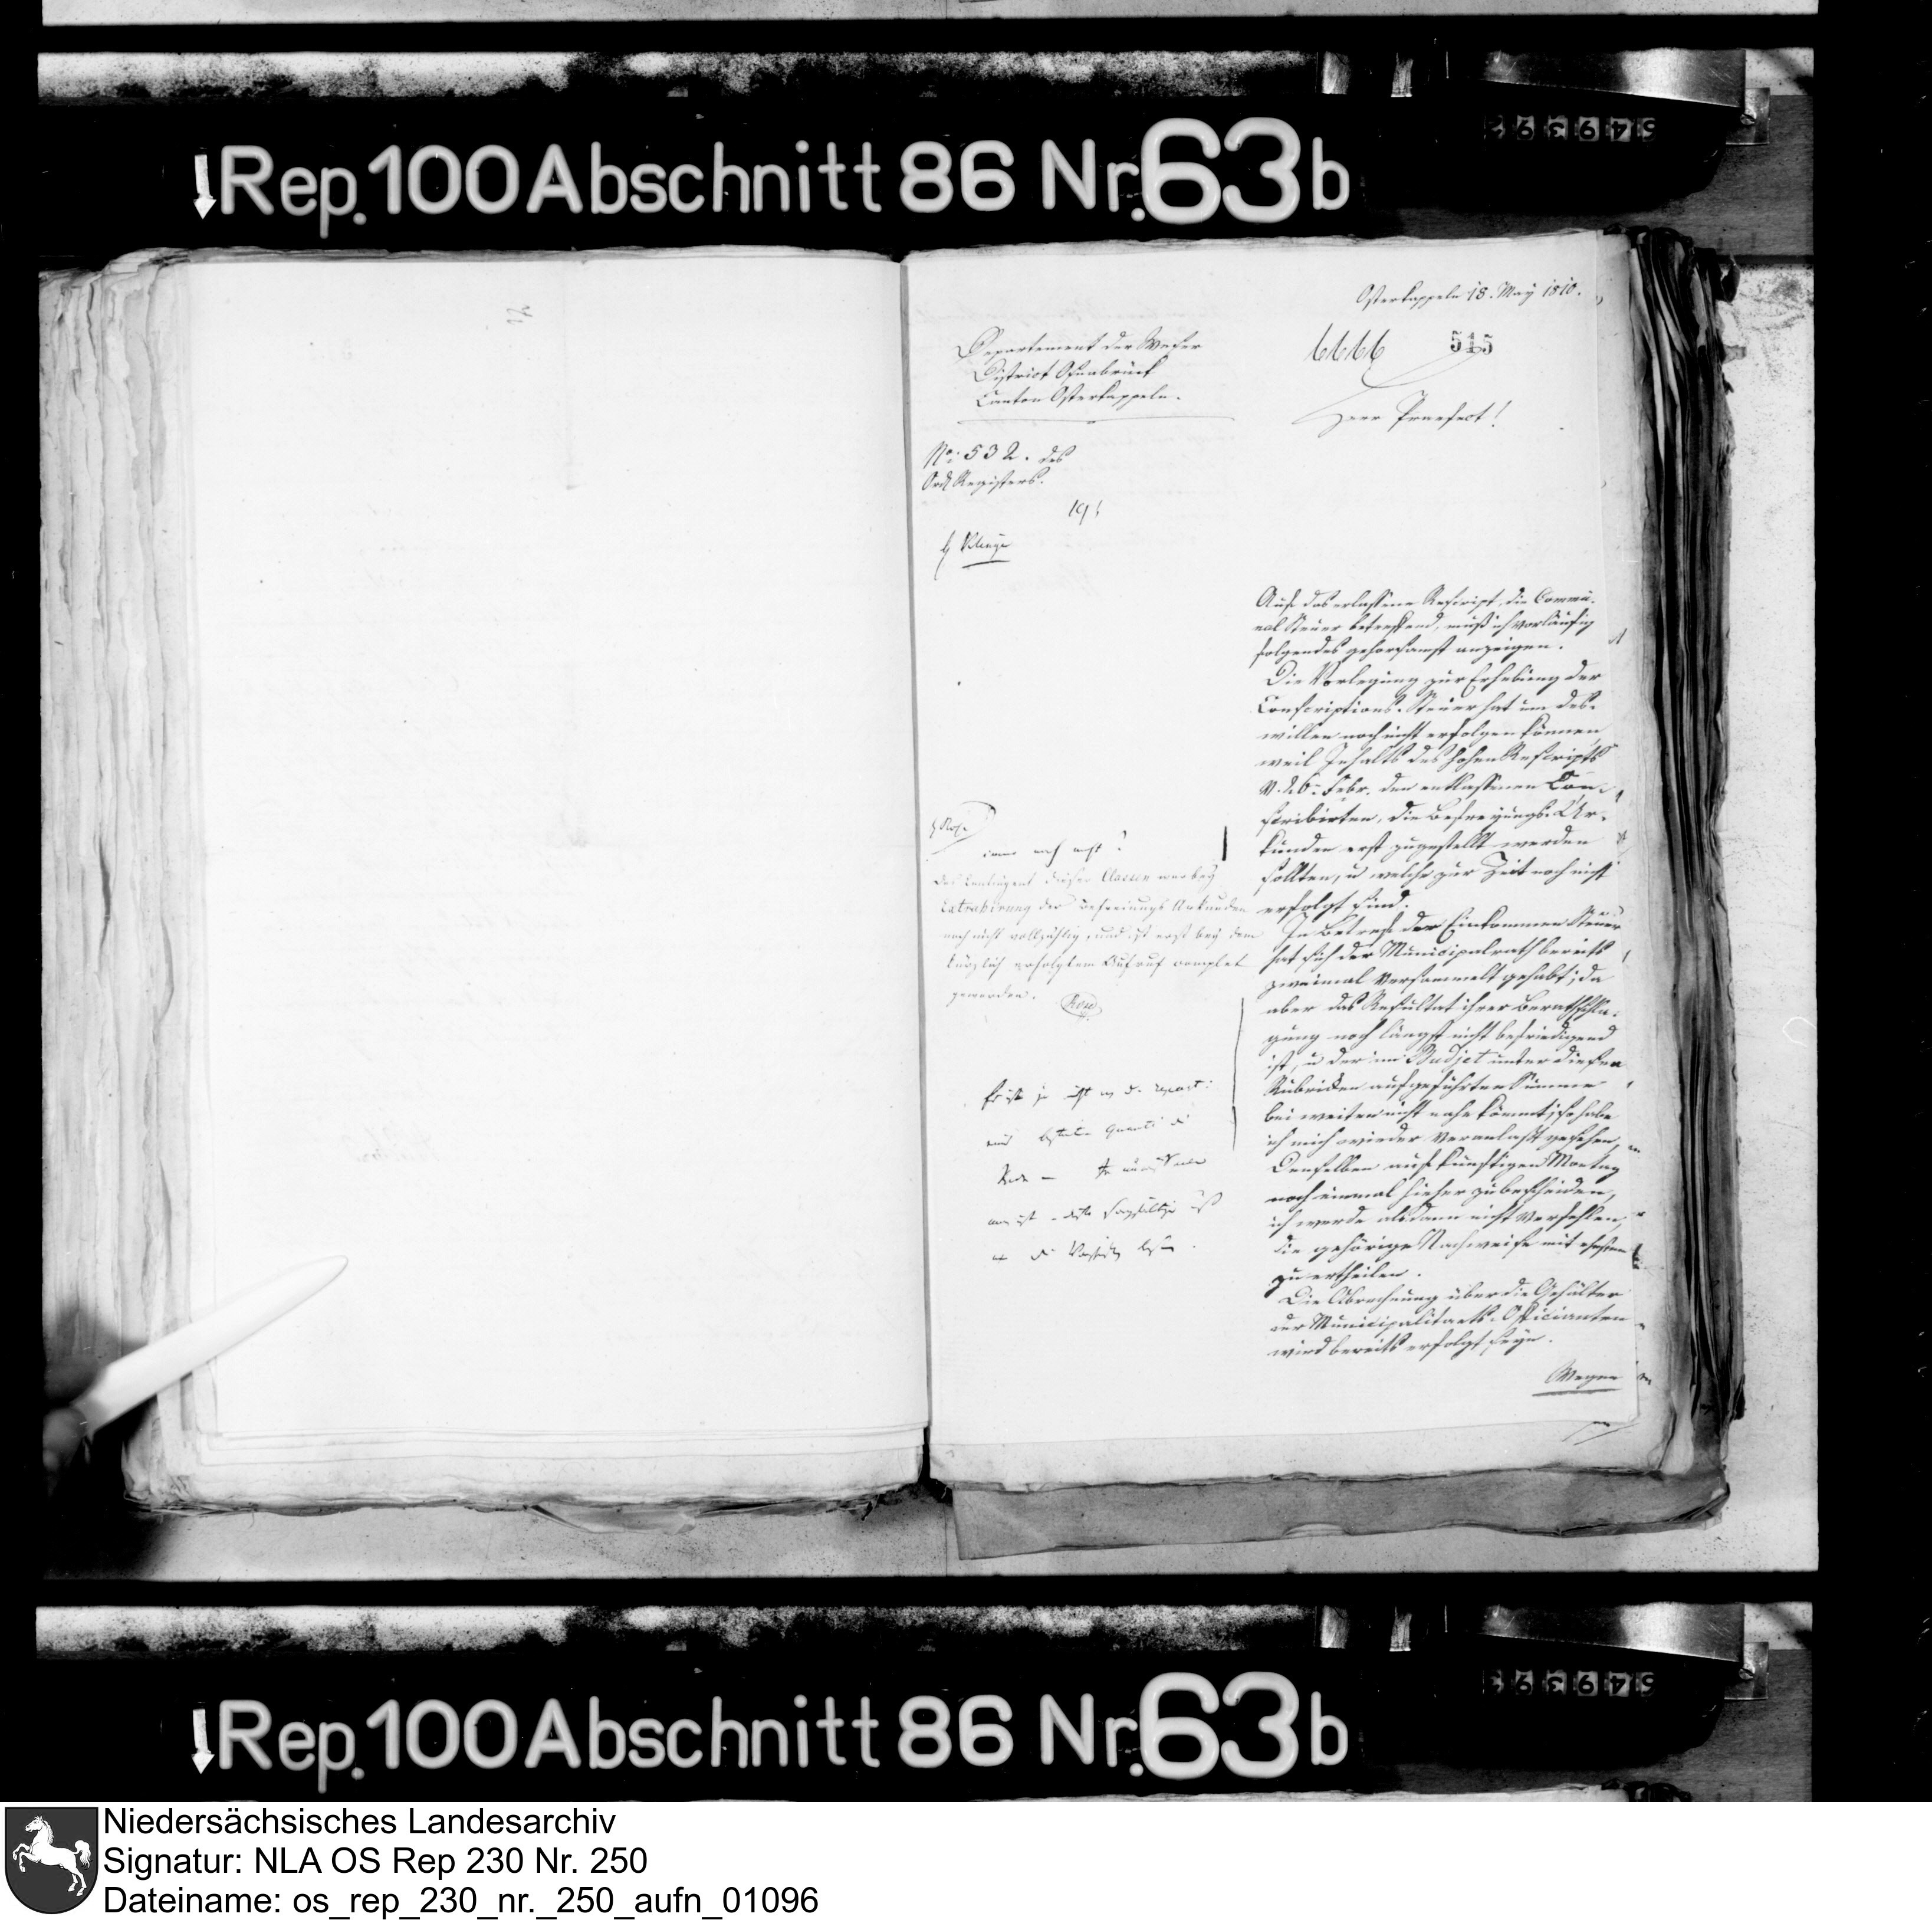 Rep. 100 Abschnitt 86 Nr. 63 b
Osterkappeln 18. May 1810.
6666 515
Departement der Weser
District Osnabrück
Canton Osterkappeln.
Herr Praefect!
No. 532. des
Registers.
Auf das erlassene Rescript, die Commu-
nal Steuer betreffend, muß ich vorläufig
folgendes gehorsamst anzeigen.
Die Vorlegung zur Erhebung der
Conscriptions-Steuer hat um des-
willen noch nicht erfolgen können,
weil Inhalts des hohen Rescripts
v. 26. Febr. den entlassenen Con-
scribirten, die Befreyungs-Ur-
kunden erst zugestellt werden
sollten, u welche zur Zeit noch nicht
erfolgt sind.
In Betreff der Einkommen Steuer
hat sich der Municipalrath bereits
zweimal versammelt gehabt; da
aber das Resultat ihrer Berathschla-
gung noch längst nicht befriedigend
ist, u der im Budjet unter diesen
Rubricken aufgeführten Summe
bei weiten nicht nahe kömmt; so habe
ich mich wieder veranlaßt gesehen,
Denselben auf künftigen Montag
noch einmal hieher zu bescheiden,
ich werde alsdann nicht verfehlen,
die gehörige Nachweise mit ehestem
zu ertheilen.
Die Abrechnung über die Gehälter
der Municipalitaets-Officianten
wird bereits erfolgt seyn.
Wegen
immer noch nicht?
Das Contingent dieser Classen war bey
Extrahirung der Befreiungs Urkunden
noch nicht vollzählig, und ist erst bey dem
kürzlich erfolgtem Aufruf complet
geworden.
Rep. 100 Abschnitt 86 Nr. 63 b
Niedersächsisches Landesarchiv
Signatur: NLA OS Rep 230 Nr. 250
Dateiname: os_rep_230_nr._250_aufn_01096